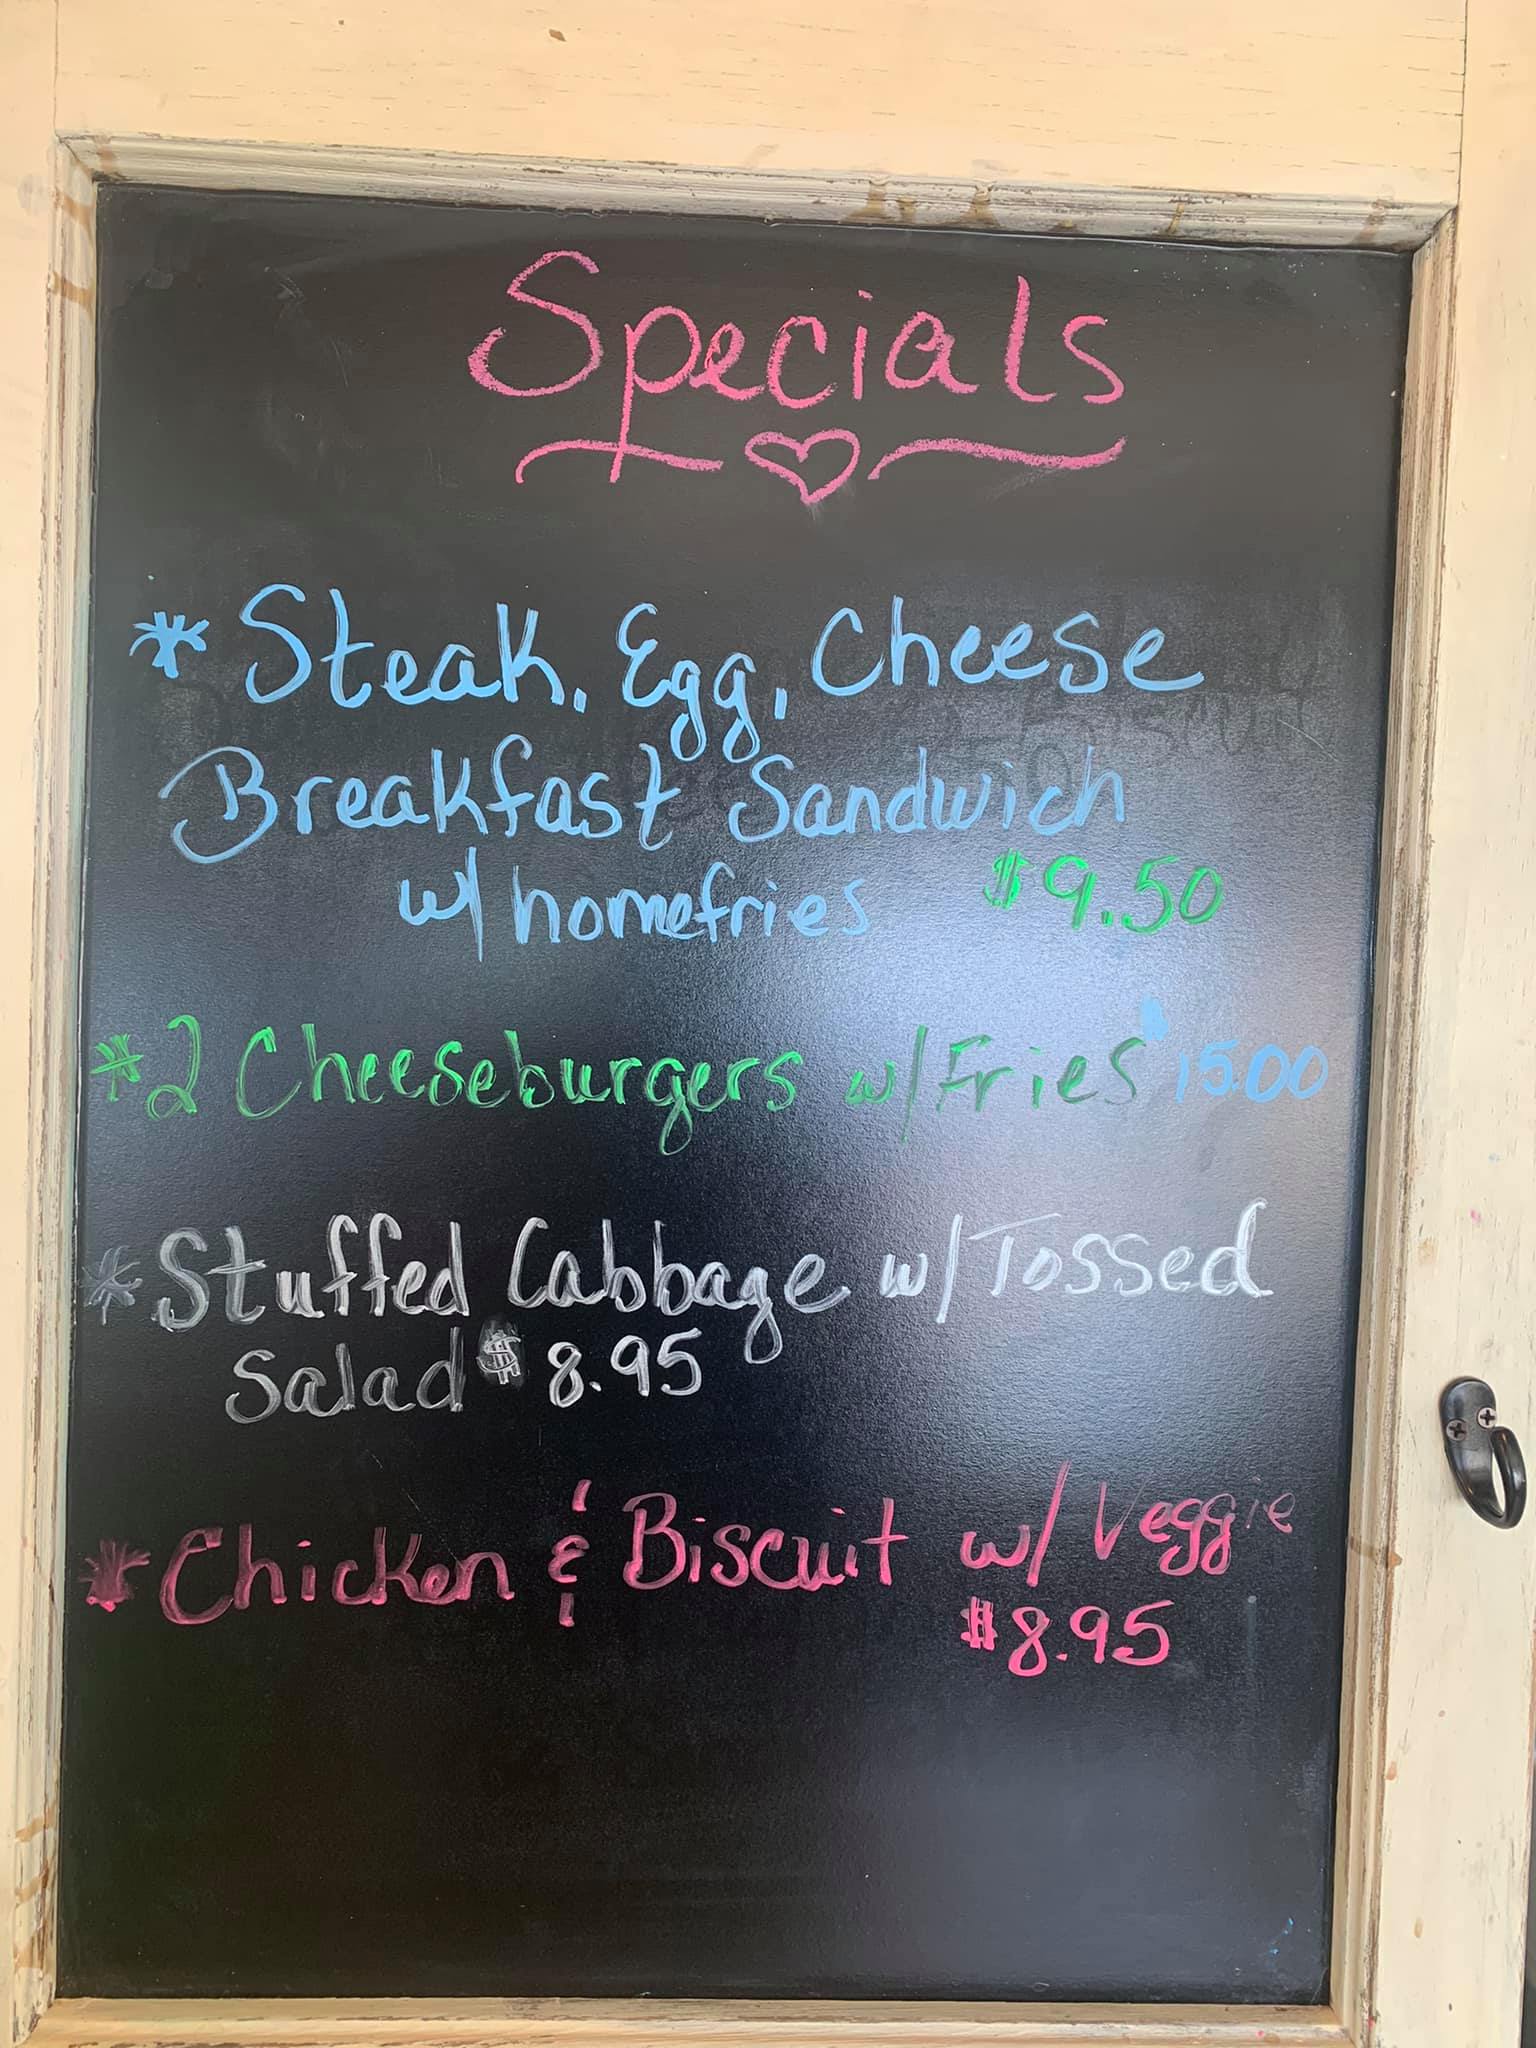 Specials
* Steak, Egg, Cheese
Breakfast Sandwich
w/ homefries $9.50
*2 Cheeseburgers w/ Fries $15.00
*Stuffed Cabbage w/ Tossed
Salad $8.95
*Chicken & Biscuit w/ Veggie
$8.95